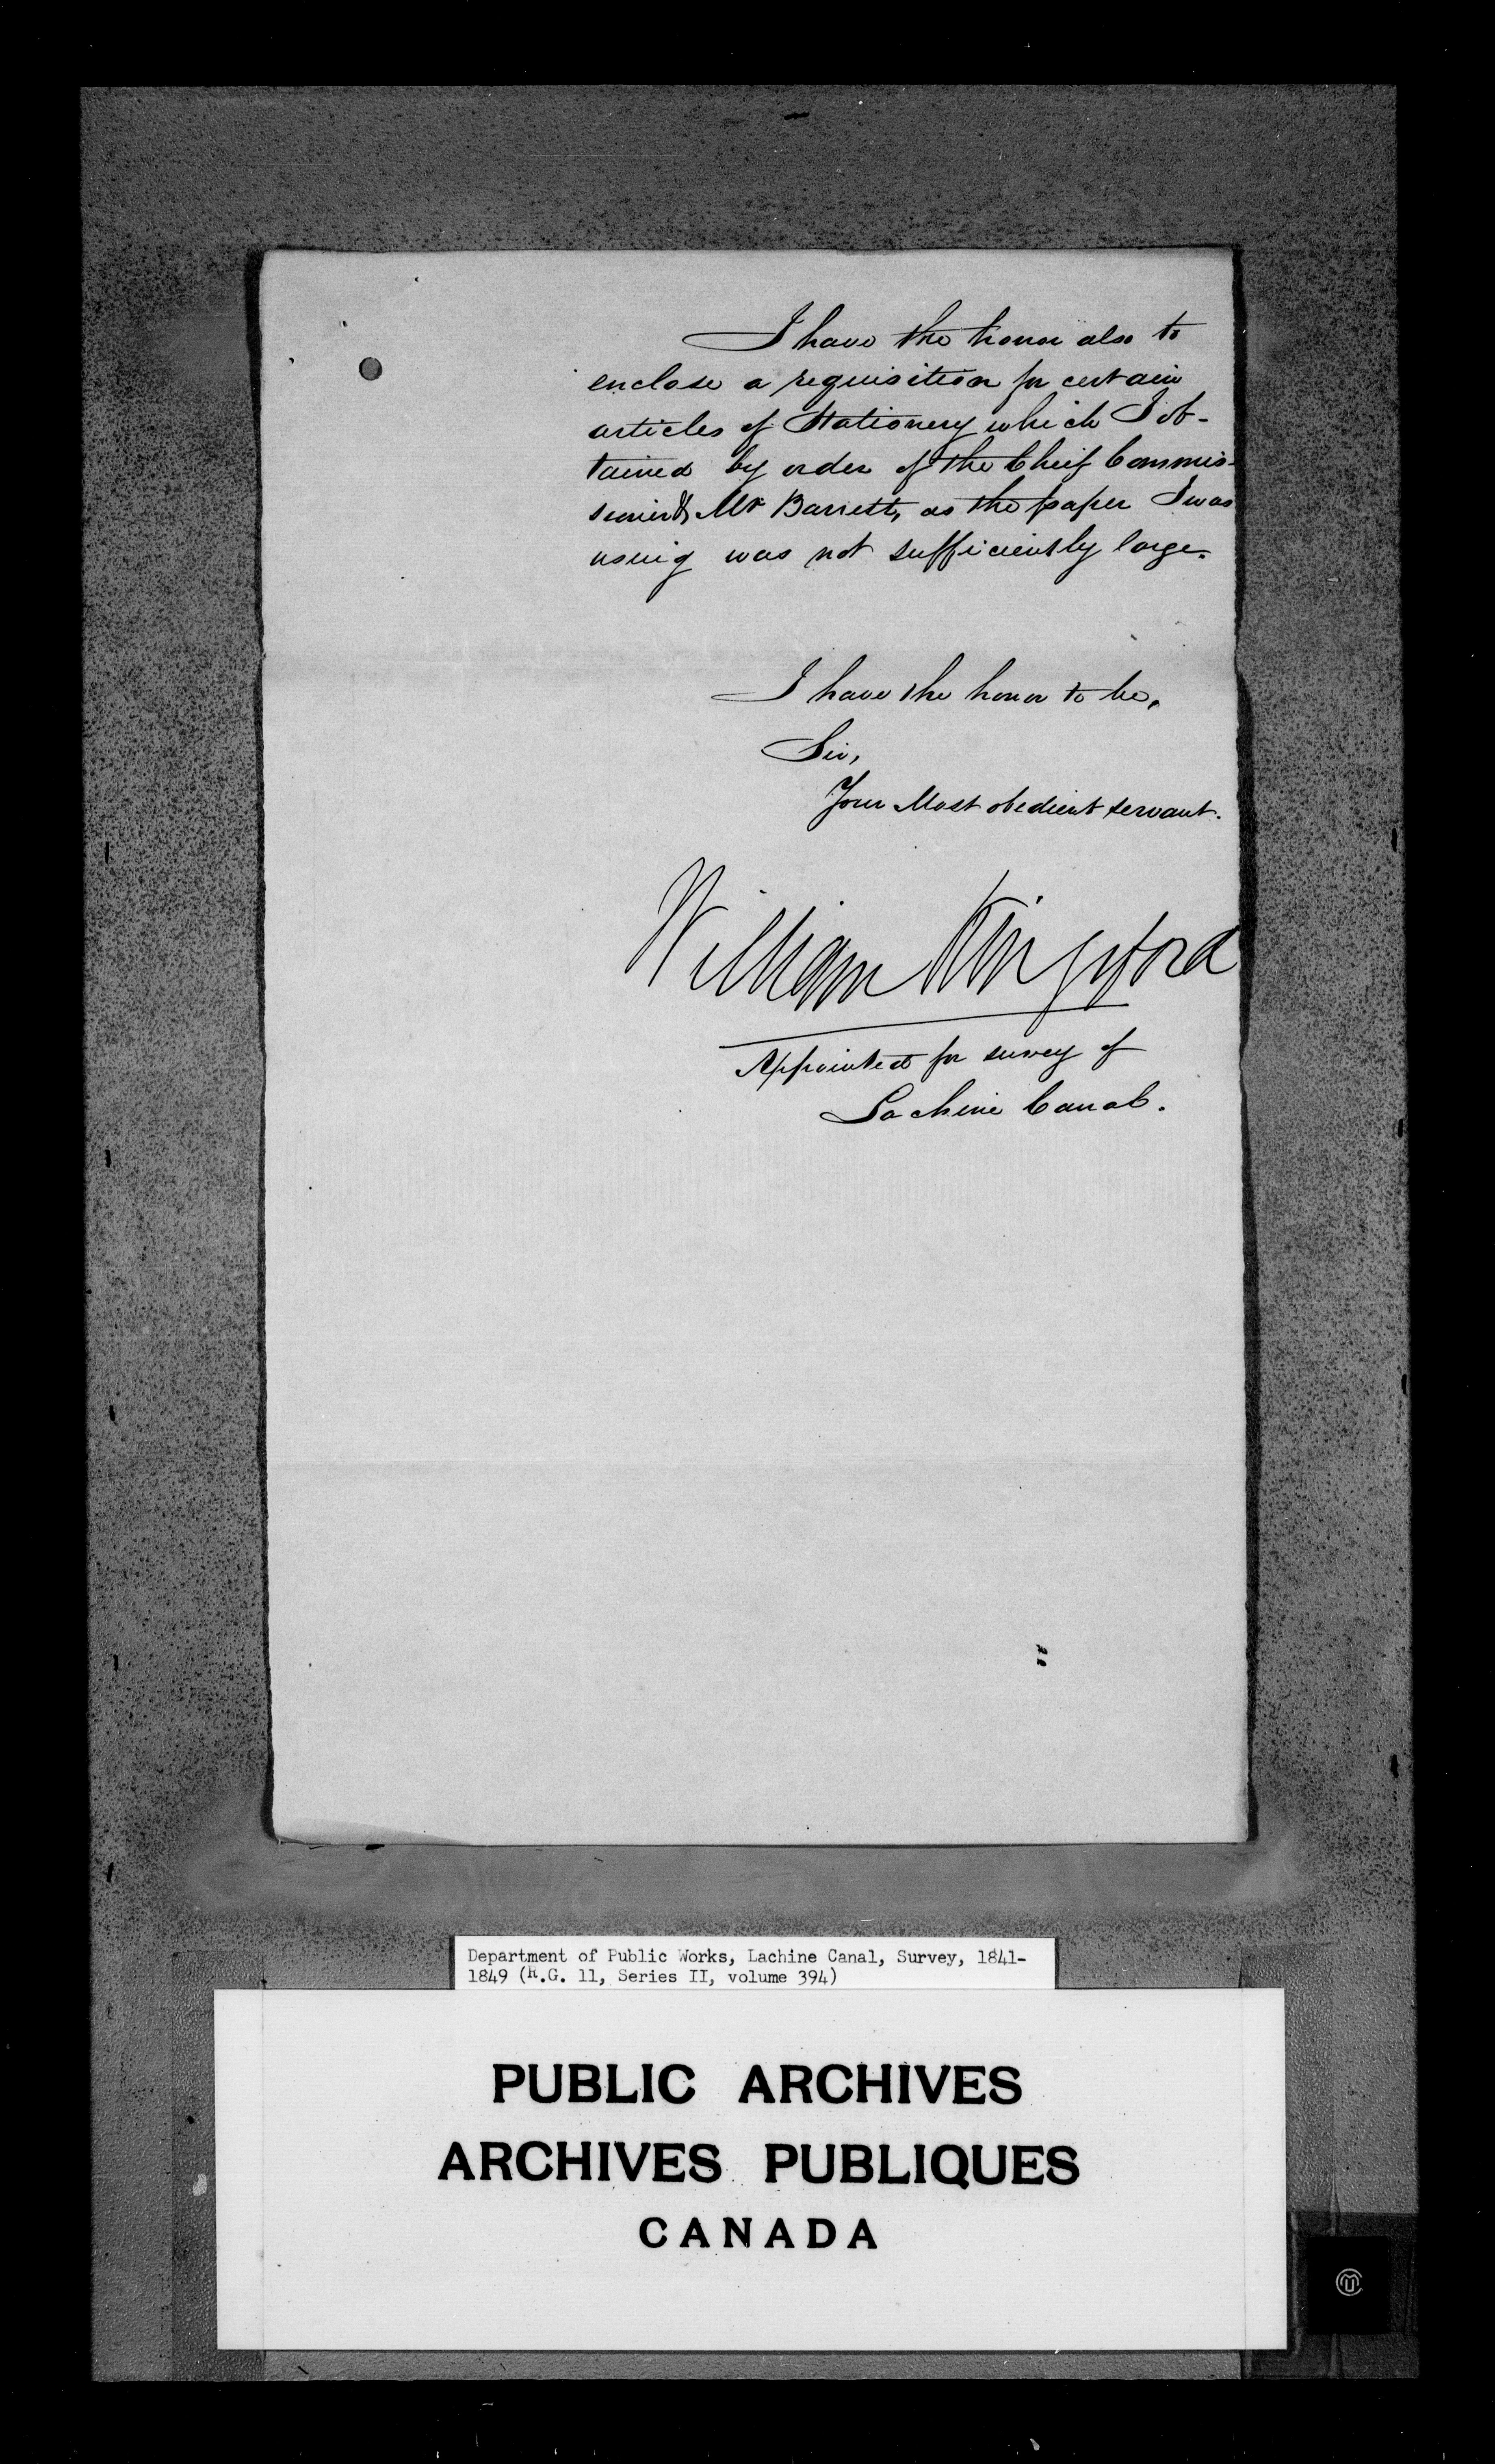 I have the honor also to
enclose a requisition for certain
articles of Stationery which I ob-
tained by order of the Cheif Commis-
sioner & Mr Barrett, as the paper I was
using was not sufficiently large.
I have the honor to be,
Sir,
Your Most obedient servant.
William Kingsford
Appointed for survey of
Lachine Canal.
Department of Public Works, Lachine Canal, Survey, 1841-
1849 (R.G. 11, Series II, volume 394)
PUBLIC ARCHIVES
ARCHIVES PUBLIQUES
CANADA